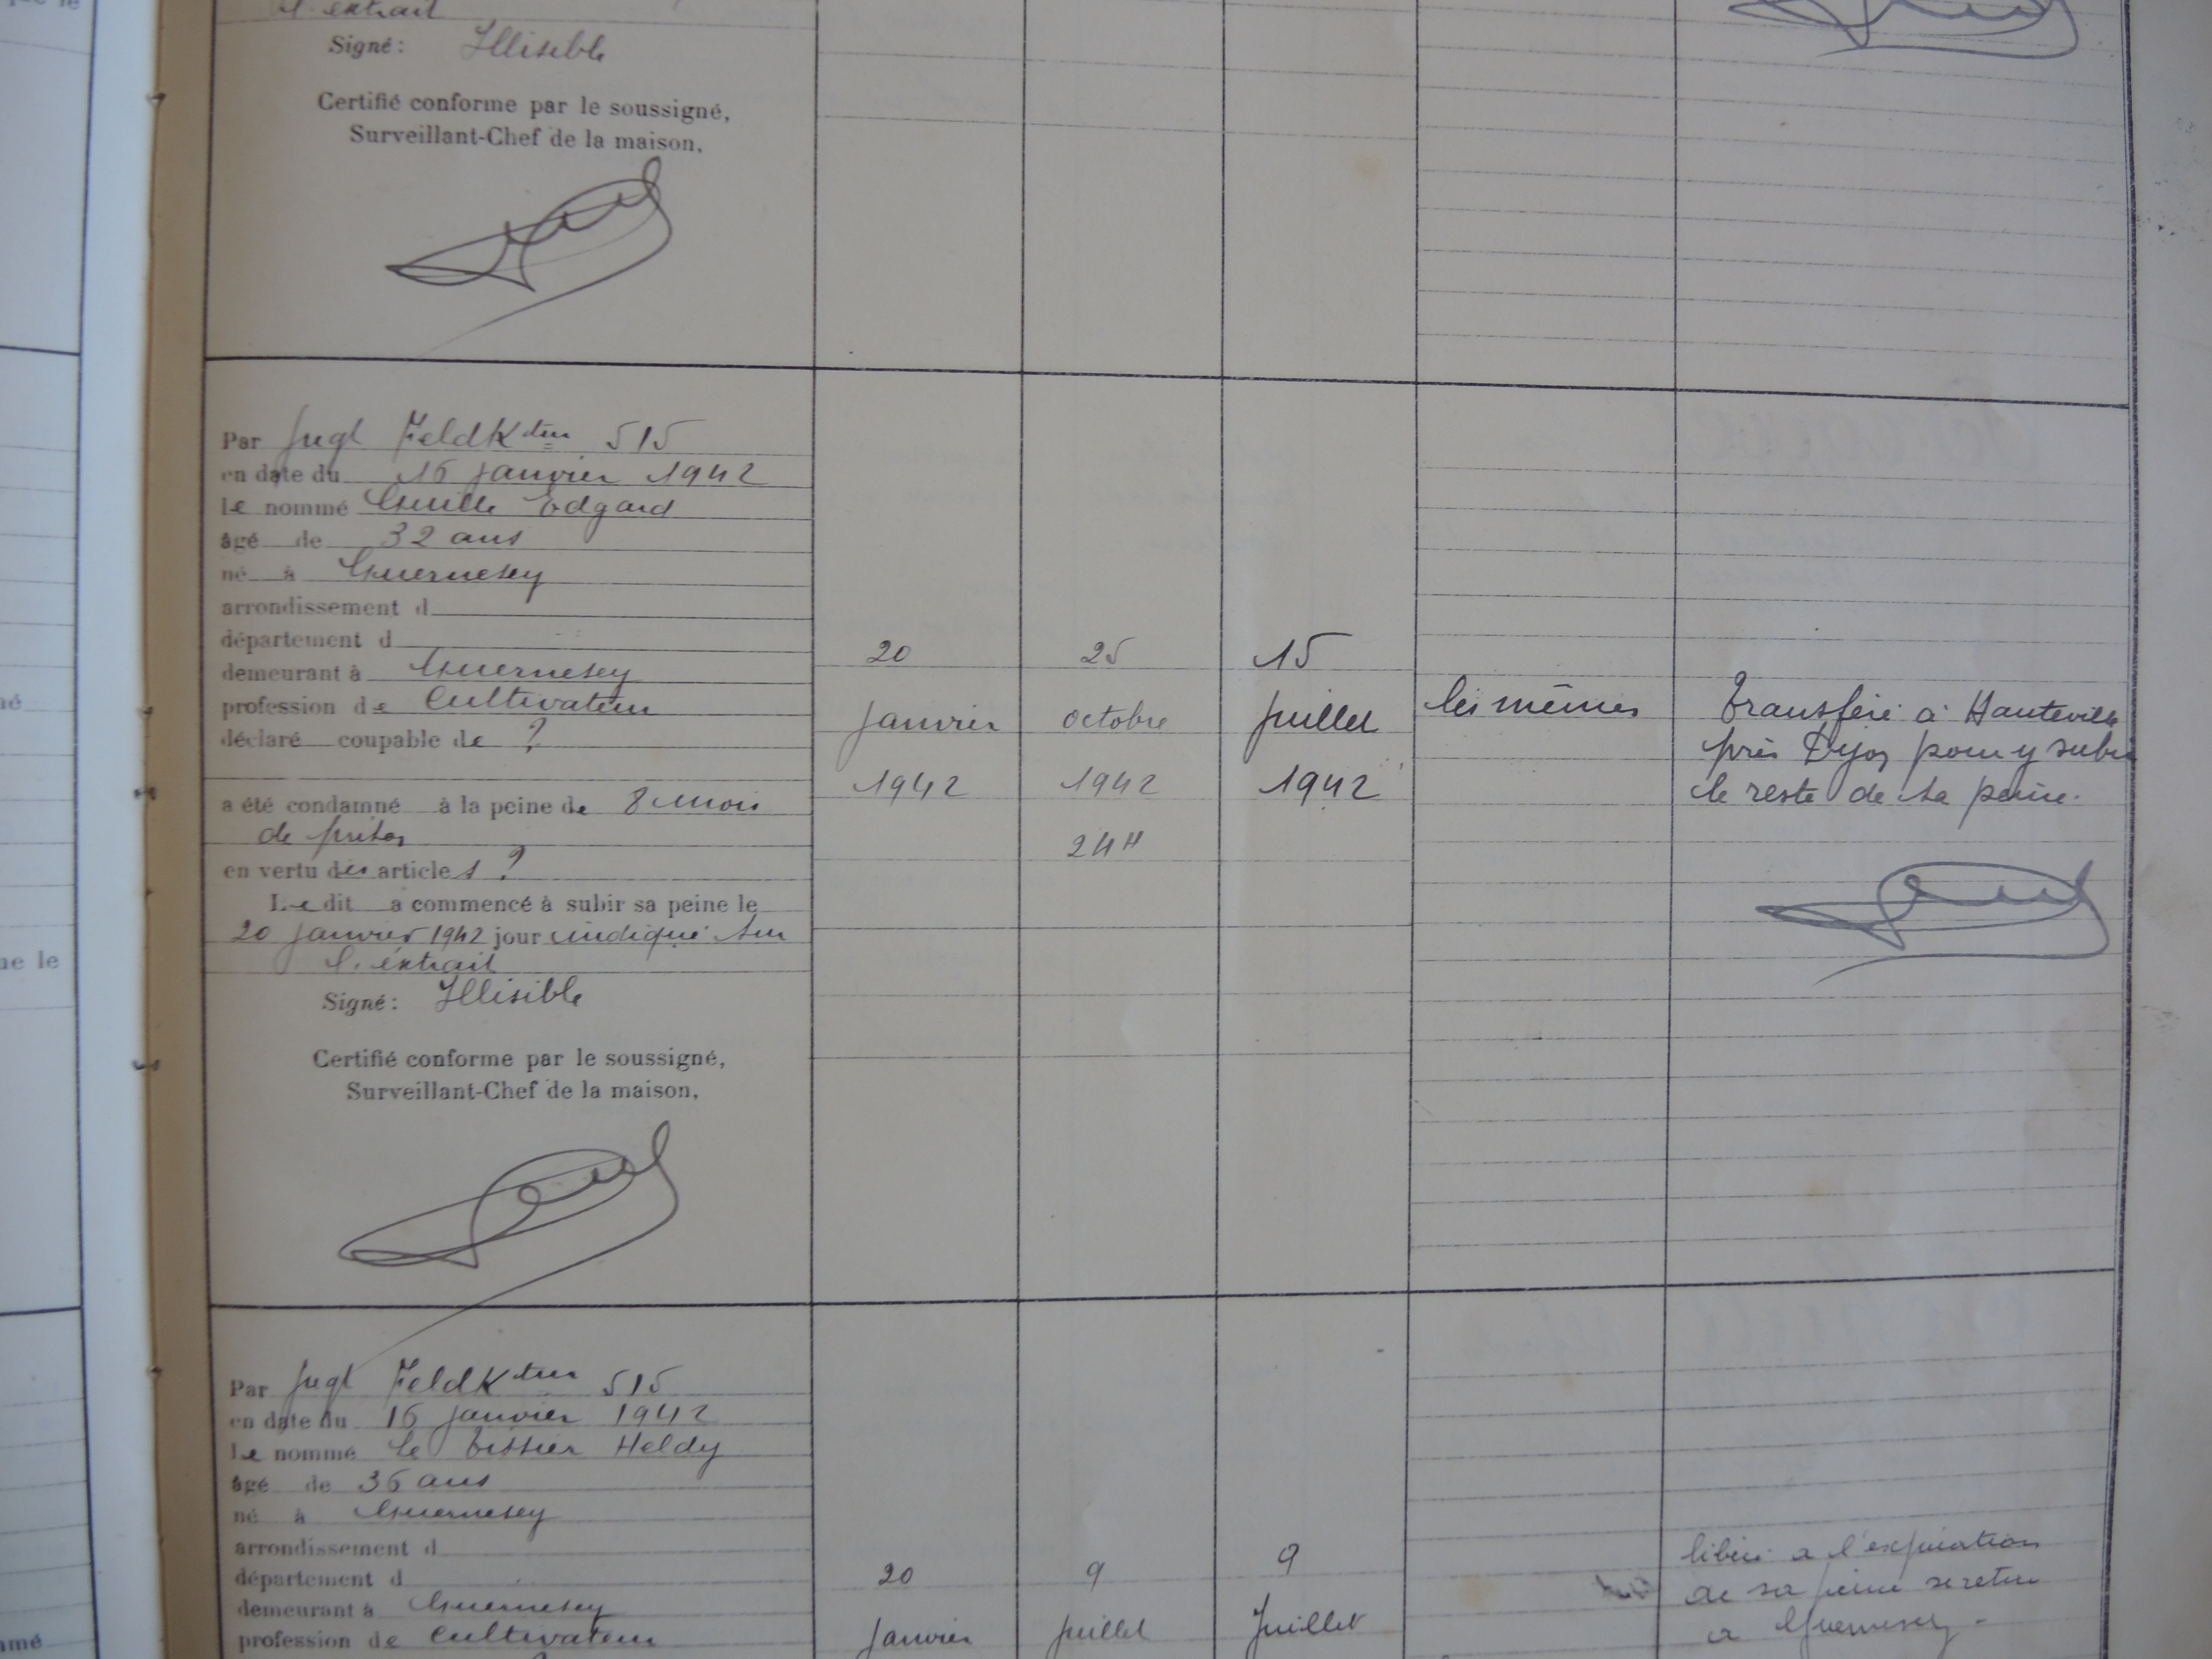 l'extrait
Signé : Illisible
Certifié conforme par le soussigné,
Surveillant-Chef de la maison,
Par Jugt FeldKtur 515
en date du 16 janvier 1942
le nommé Guille Edgard
âgé de 32 ans
né à Guernesey
arrondissement d
département d
demeurant à Guernesey
profession de Cultivateur
déclaré coupable de ?
a été condamné à la peine de 8 mois
de prison
en vertu des articles ?
Le dit a commencé à subir sa peine le
20 janvier 1942 jour indiqué sur
l'extrait
Signé : Illisible
Certifié conforme par le soussigné,
Surveillant-Chef de la maison,
20
janvier
1942
25
octobre
1942
24H
15
juillet
1942
les mêmes
Transféré à Hauteville
près Dijon pour y subir
le reste de sa peine.
Par Jugt FeldKtur 515
en date du 16 janvier 1942
le nommé Le Tissier Heldy
âgé de 36 ans
né à Guernesey
arrondissement d
département d
demeurant à Guernesey
profession de Cultivateur
20
janvier
9
juillet
9
Juillet
libéré a l'expiration
de sa peine se retire
a Guernesey -
né
ne le
mmé